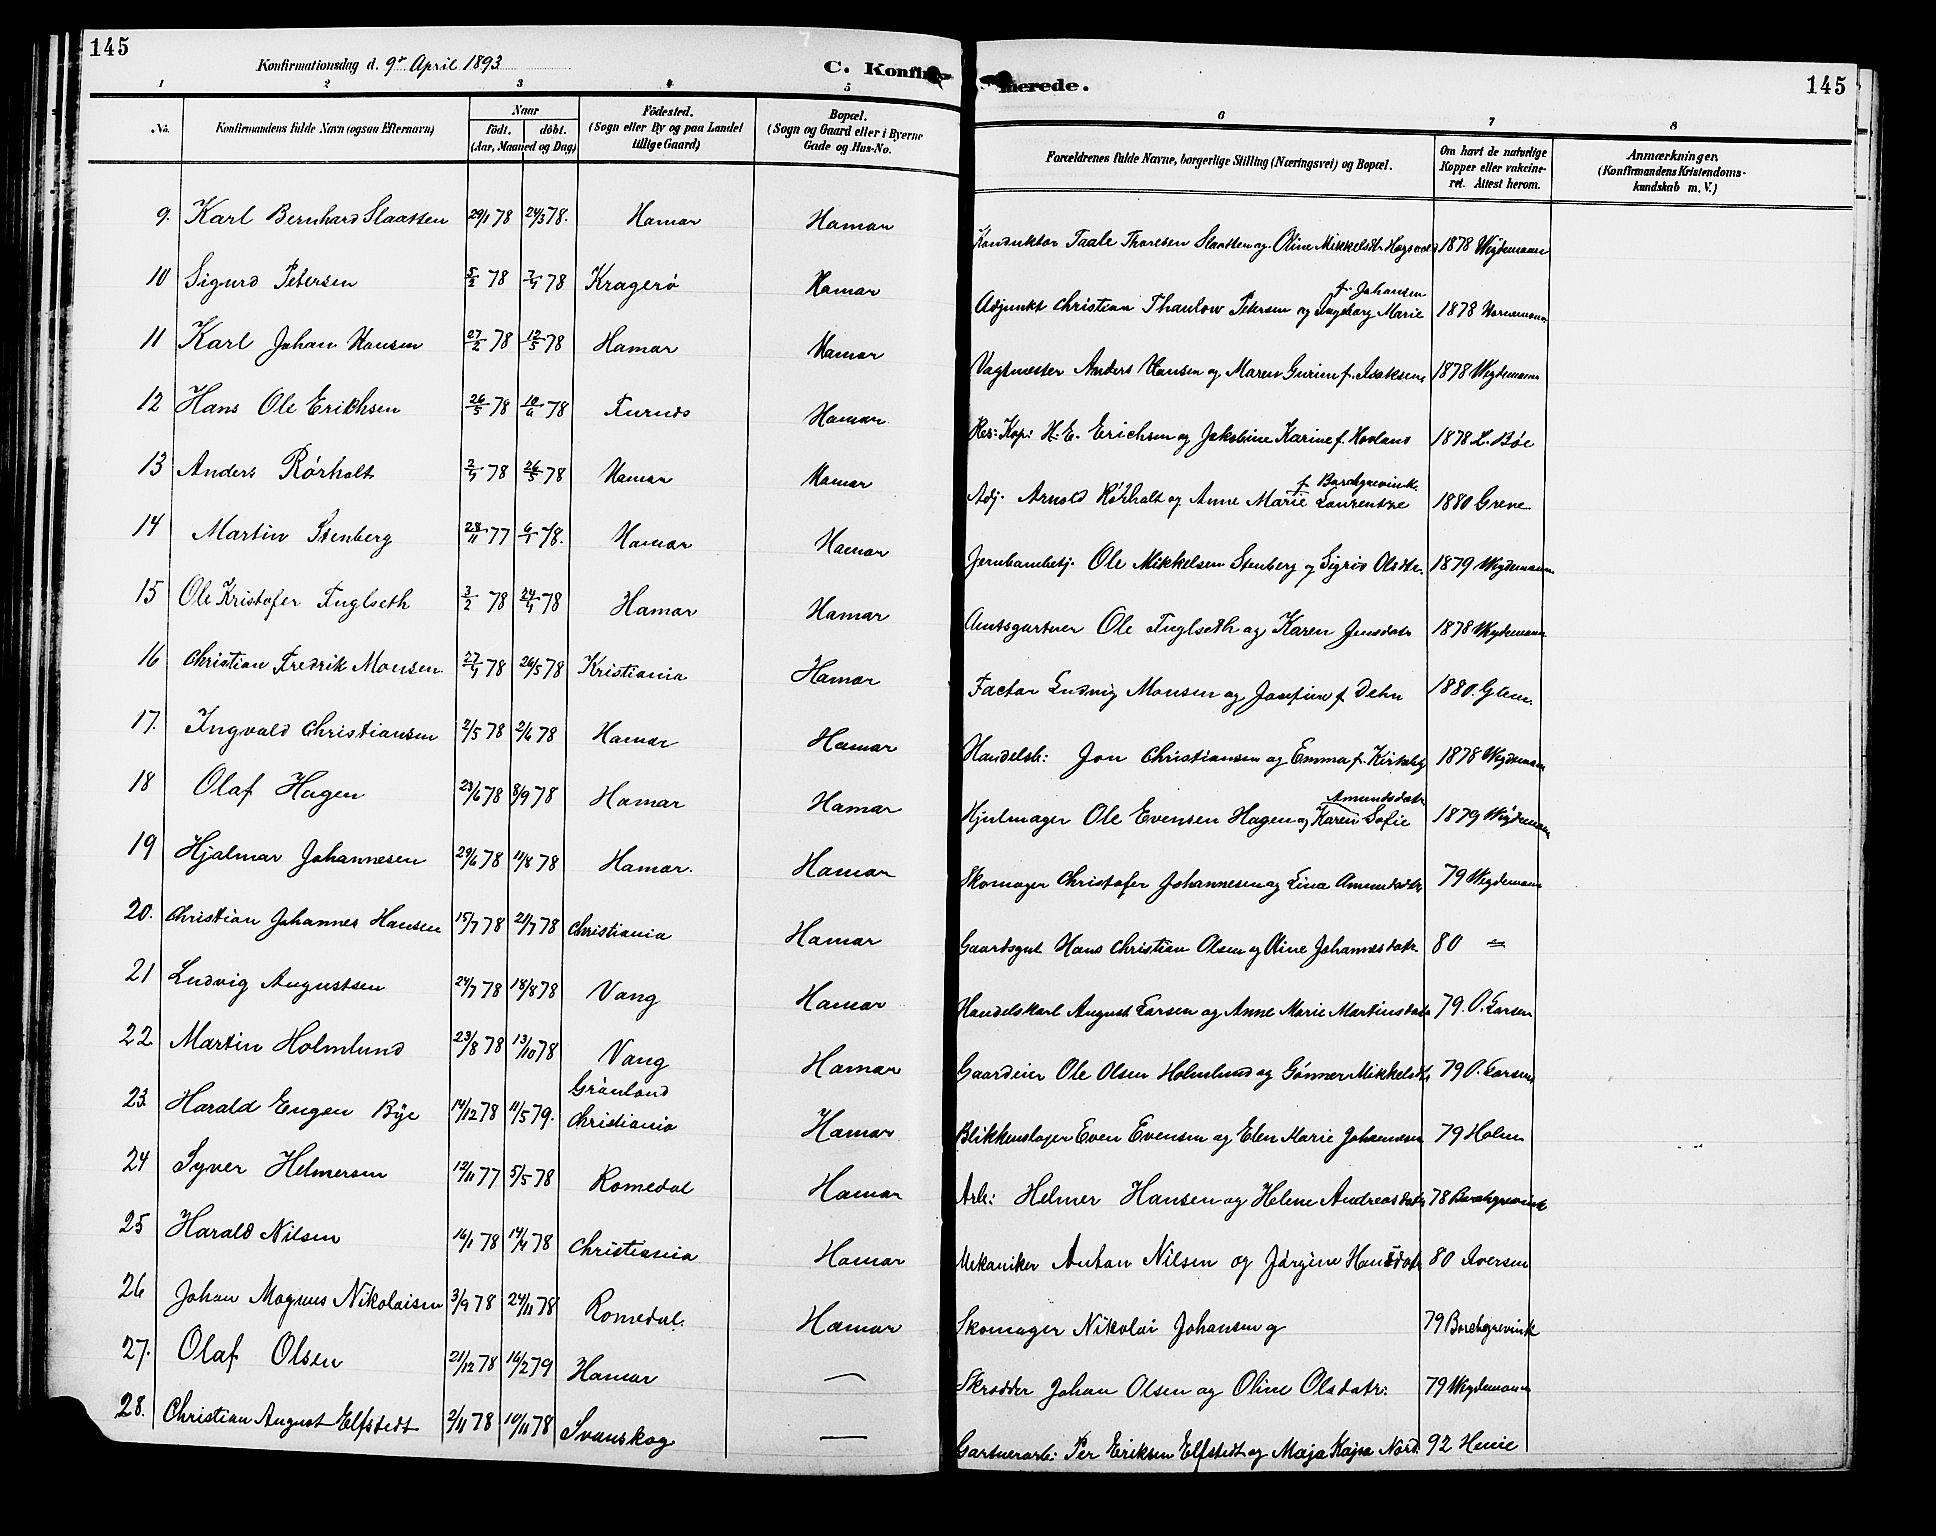 145
Konfirmationsdag d. 9de April 1893
C. Konfirmerede.
145
1 2 3 4 5 6 7 8
No. Konfirmandens fulde Navn (ogsaa Efternavn) Naar født. døbt. (Aar, Maaned og Dag) Fødested. (Sogn eller By og paa Landet tillige Gaard) Bopæl. (Sogn og Gaard eller i Byerne Gade og Hus-No. Forældrenes fulde Navne, borgerlige Stilling (Næringsvei) og Bopæl. Om havt de naturlige Kopper eller vakcineret. Attest herom. Anmærkninger. (Konfirmandens Kristendomskundskab m. V.)
9. Karl Bernhard Slaatten 29/1 78 24/3 78. Hamar Hamar Konduktør Taale Thoresen Slaatten og Oline Mikkelsdtr 1878 Wigdemann
10 Sigurd Petersen 5/2 78 7/4 78 Kragerø Hamar Adjunkt Christian Thaulow Petersen og Ingeborg Marie f. Johansen 1878
11 Karl Johan Hansen 27/2 78 12/5 78 Hamar Hamar Vagtmester Anders Hansen og Maren Gurine f. Isaksen 1878 Wigdemann
12 Hans Ole Erichsen 26/5 78 10/6 78 Furnes Hamar Res: Kap: H. E. Erichsen og Jakobine Karine f. Hovland 1878 L. Bøe
13 Anders Rørholt 2/4 78 26/5 78 Hamar Hamar Adj. Arnold Rørholt og Anne Marie Laurentze f. Borchgrevink 1880 Greve
14 Martin Stenberg 28/11 77 6/1 78. Hamar Hamar Jernbanebetj. Ole Mikkelsen Stenberg og Sigrid Olsdtr. 1879 Wigdemann
15 Ole Kristofer Fuglseth 3/2 78 24/4 78 Hamar Hamar Amtsgartner Ole Fuglseth og Karen Jensdatr 1878 Wigdemann
16 Christian Fredrik Monsen 27/4 78 26/5 78 Kristiania Hamar Factor Ludvig Monsen og Josefine f. Dehn 1880.
17. Ingvald Christiansen 2/5 78 2/6 78 Hamar Hamar Handelsb: Jon Christiansen og Emma f. Kirkeby 1878 Wigdemann
18 Olaf Hagen 23/6 78 8/9 78 Hamar Hamar Hjulmager Ole Evensen Hagen og Karen Sofie Amundsdatr 1879 Wigdemann
19 Hjalmar Johannesen 29/6 78 11/8 78 Hamar. Hamar Skomager Christofer Johannesen og Lina Amundsdtr 79 Wigdemann
20. Christian Johannes Hansen 15/7 78 21/7 78 Christiania Hamar Gaardsgut Hans Christian Olsen og Oline Johannesdatr 80 —"—
21 Ludvig Augustsen 24/7 78 18/8 78 Vang Hamar Handelskarl August Larsen og Anne Marie Martinsdatr 79. O. Larsen
22 Martin Holmlund 23/8 78 13/10 78 Vang Hamar Gaardeier Ole Olsen Holmlund og Gønner Mikkelsdtr 79 O. Larsen
23. Harald Engen Bye 14/12 78 11/5 79. Grønland Christiania Hamar Blikkenslager Even Evensen og Elen Marie Johannesen 79 Holm
24 Syver Helmersen 12/11 77 5/5 78 Romedal Hamar Arb: Helmer Hansen og Helene Andreasdatr 78 Borchgrevink
25 Harald Nilsen 16/1 78 14/4 78 Christiania Hamar Mekaniker Anton Nilsen og Jørgine Hansdatr 80 Iversen
26 Johan Magnus Nikolaisen 3/9 78 24/11 78 Romedal. Hamar Skomager Nikolai Johansen og 79 Borchgrevink
27. Olaf Olsen 21/12 78 16/2 79 Hamar — Skrædder Johan Olsen og Oline Olsdatr: 79 Wigdemann
28. Christian August Elfstedt 2/11 78 10/11 78 Svanskog — Gartnerarb: Per Eriksen Elfstedt og Maja Kajsa Nord. 92 Henie